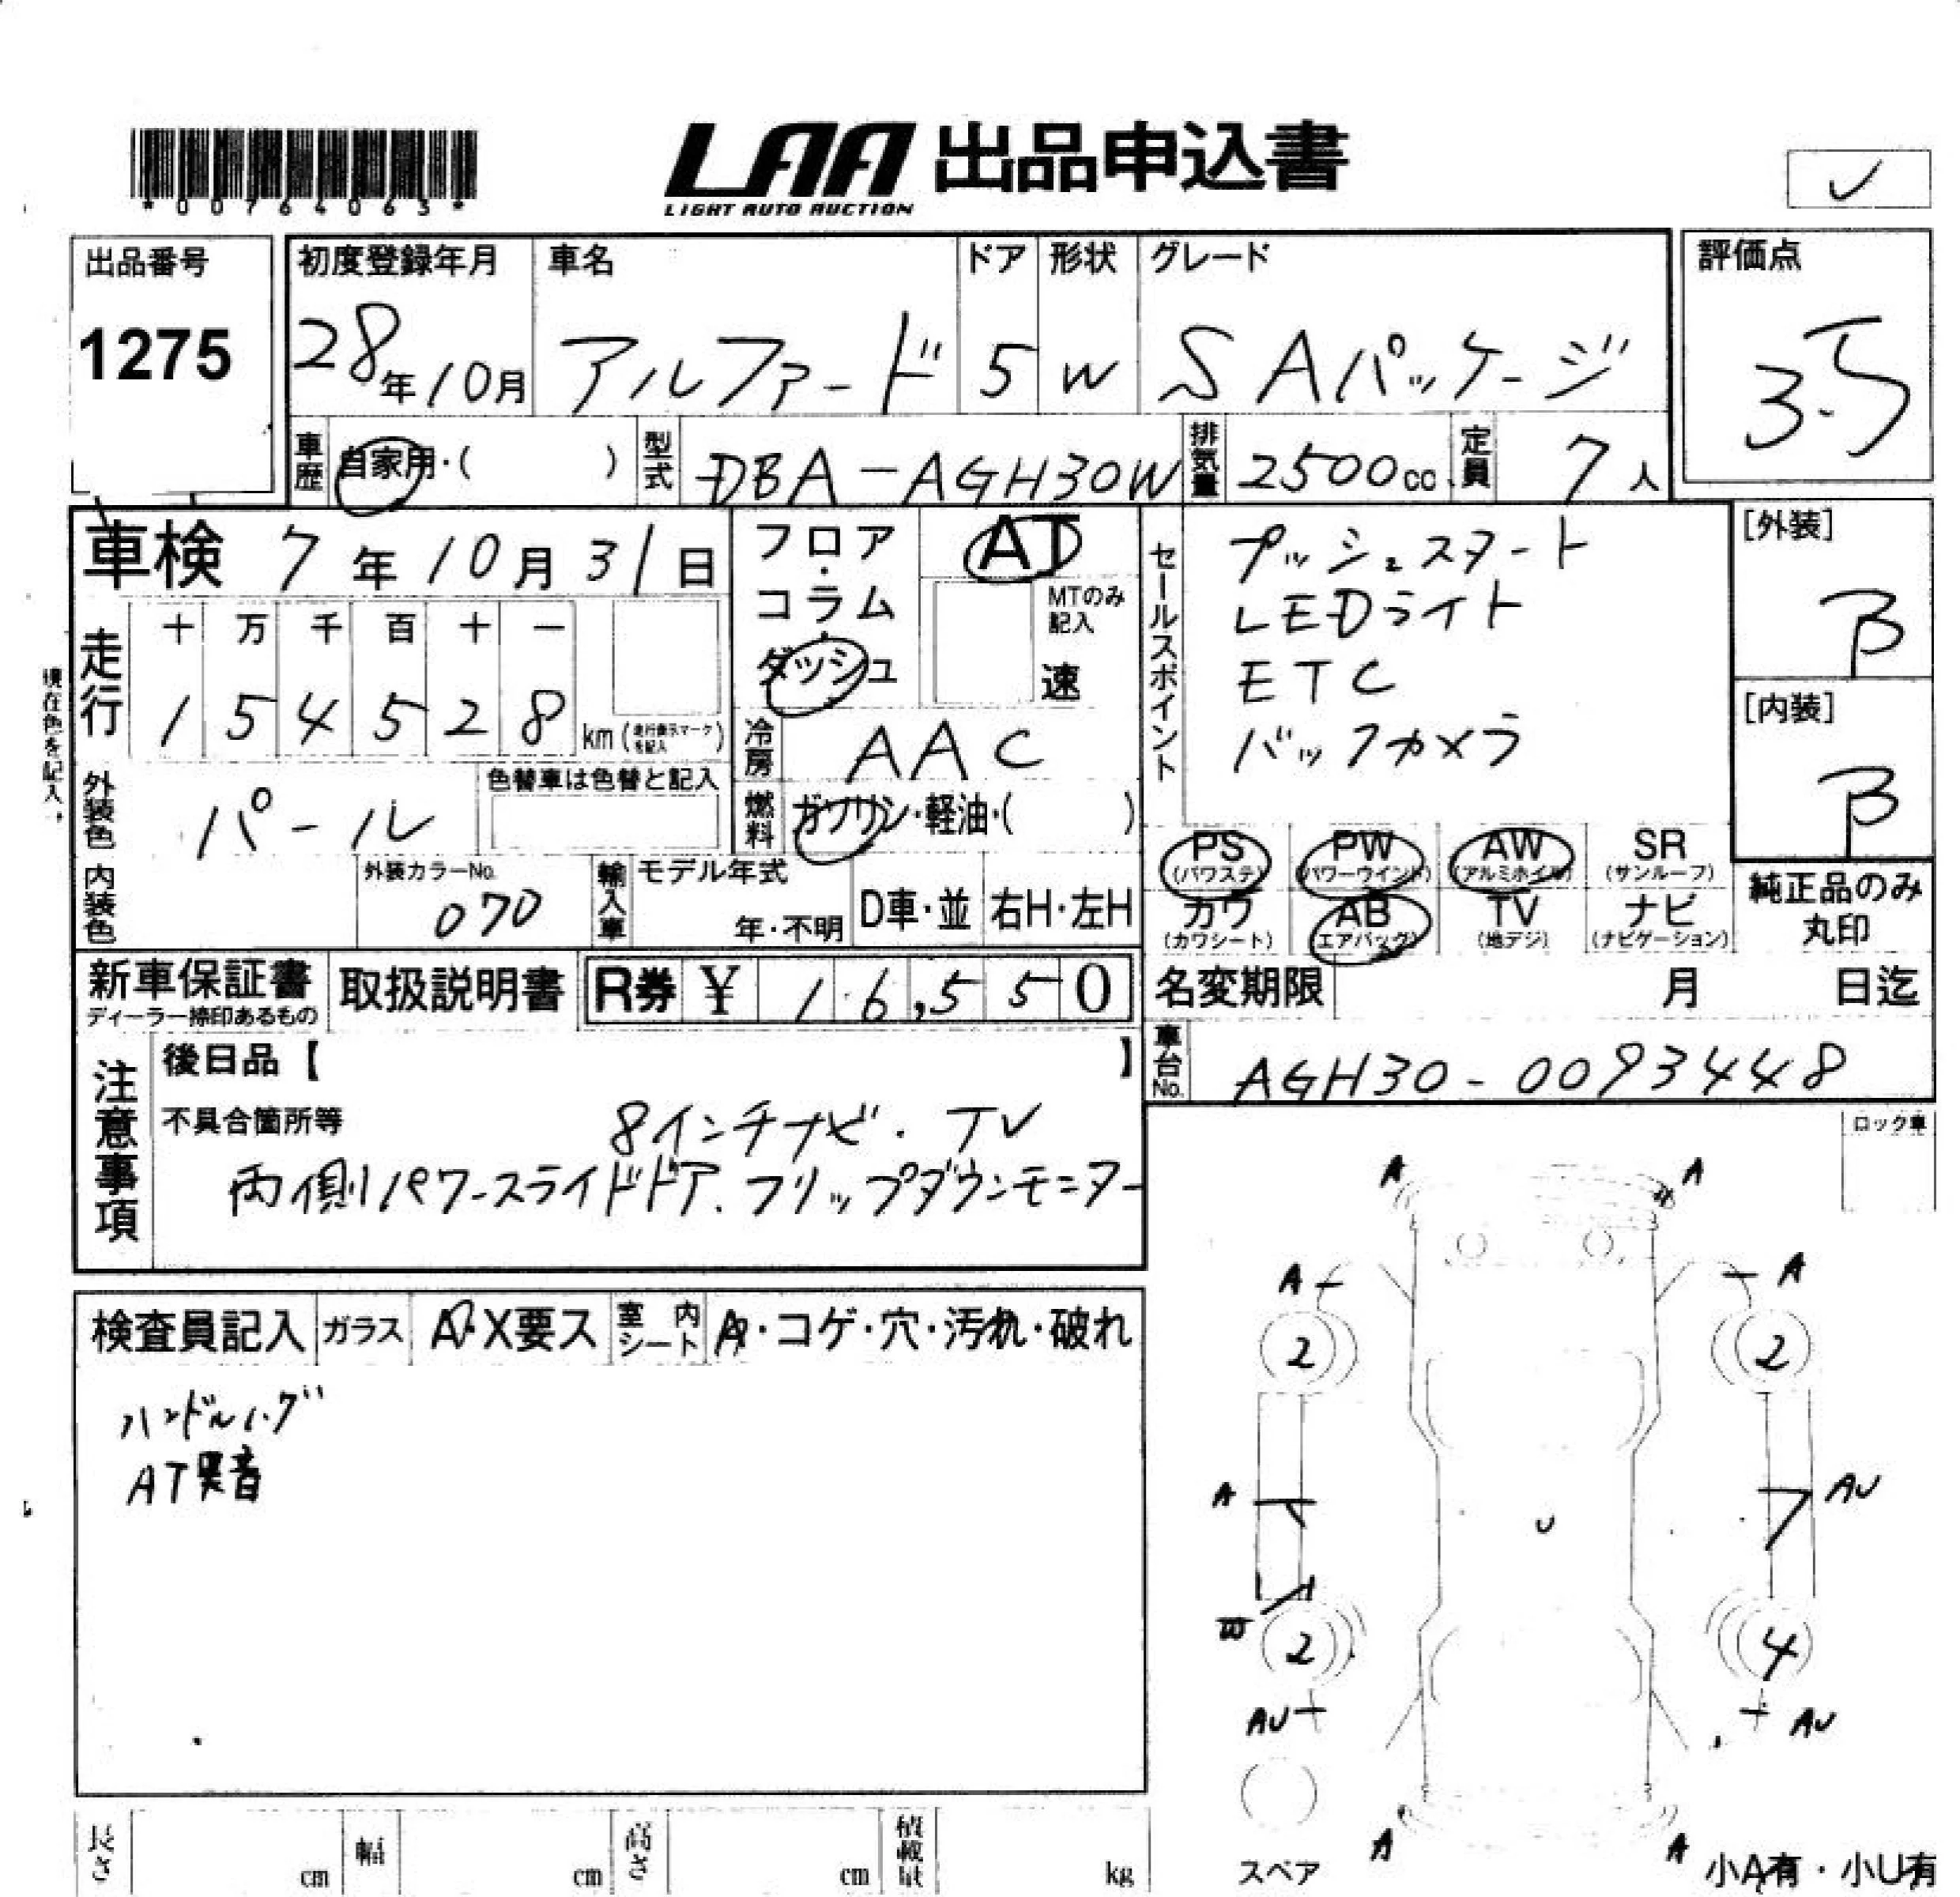 *00764063*
LAA 出品申込書
LIGHT AUTO AUCTION
出品番号
1275
初度登録年月
28年10月
車名
アルファード
ドア
5
形状
W
グレード
SAパッケージ
評価点
3.5
車歴
自家用・( )
型式
DBA-AGH30W
排気量
2500cc
定員
7人
車検 7年10月31日
走行
十 万 千 百 十 一
1 5 4 5 2 8 km (走行表示マークを記入)
現在色を記入。
フロア・コラム・ダッシュ
AT
MTのみ記入
速
冷房
AAC
燃料
ガソリン・軽油・( )
外装色
パール
色替車は色替と記入
内装色
外装カラーNo.
070
輸入車
モデル年式
年・不明
D車・並
右H・左H
セールスポイント
プッシュスタート
LEDライト
ETC
バックカメラ
[外装]
B
[内装]
B
PS (パワステ)
PW (パワーウインド)
AW (アルミホイル)
SR (サンルーフ)
カワ (カワシート)
AB (エアバッグ)
TV (地デジ)
ナビ (ナビゲーション)
純正品のみ
丸印
新車保証書
ディーラー捺印あるもの
取扱説明書
R券 ¥ 16,550
名変期限 月 日迄
車台No.
AGH30-0093448
注意事項
後日品【 】
不具合箇所等
8インチナビ.TV
両側パワースライドドア.フリップダウンモニター
検査員記入
ガラス
A・X要ス
室内シート
A・コゲ・穴・汚れ・破れ
ハンドルハゲ
AT異音
ロック車
A A
A A
2 2
A AU
U
W
2 4
AU AU
A A
スペア
小A有・小U有
長さ cm
幅 cm
高さ cm
積載量 kg